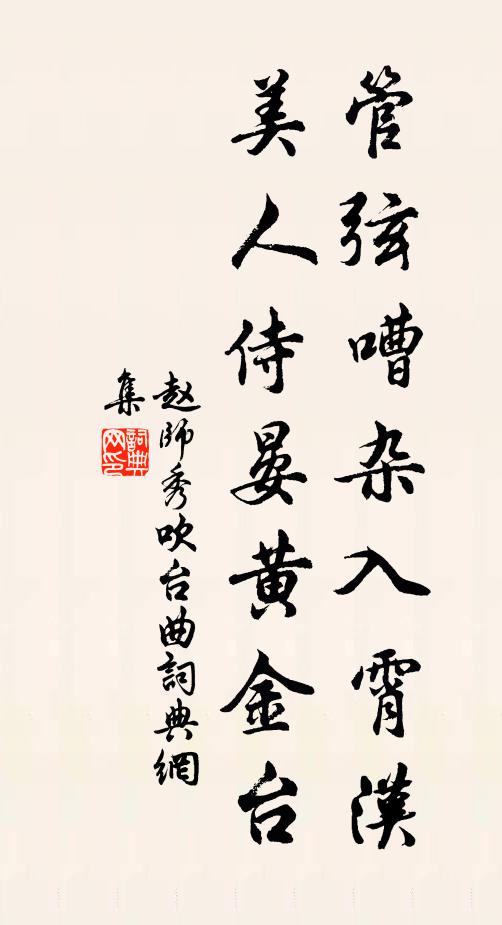 管弦嘈杂入霄漢
美人侍晏黄金台
赵師秀吹台曲詞典網
集
詞典网印